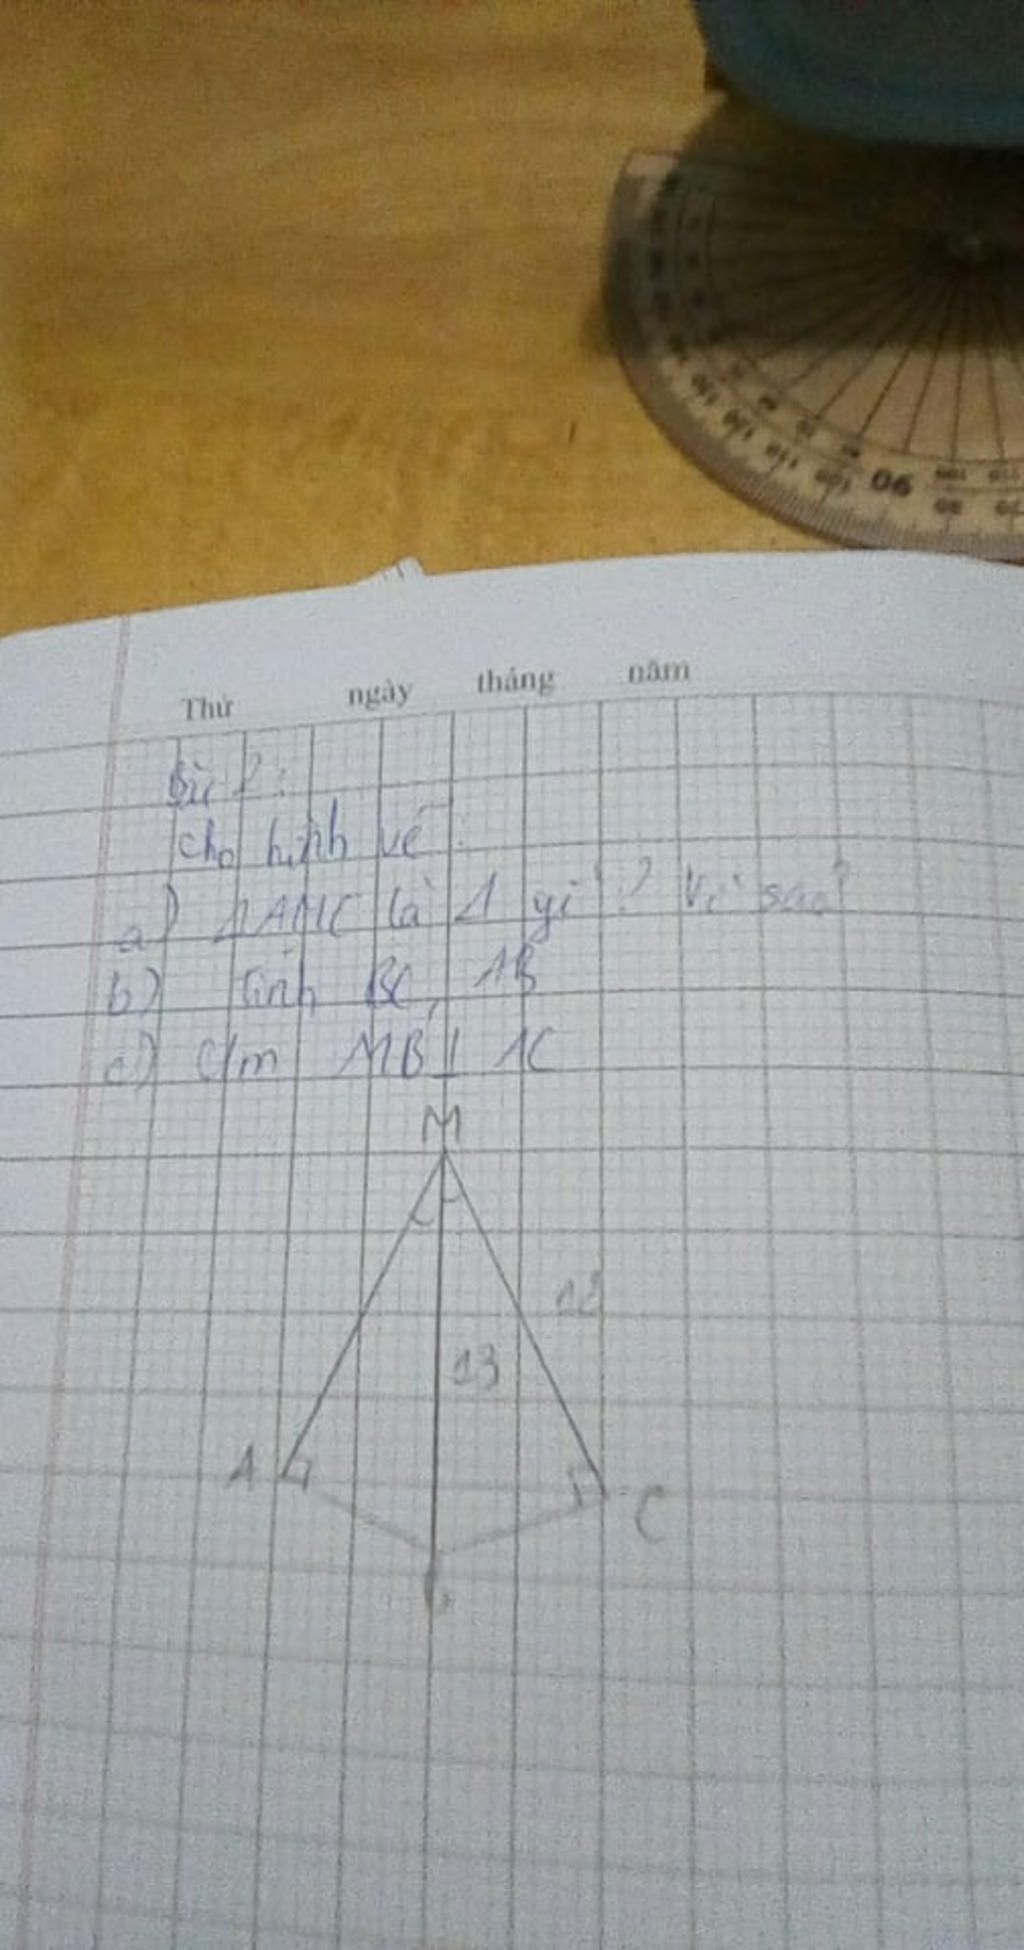 Thứ ngày tháng năm
Bài 2:
cho hình vẽ:
a) ΔAMC là Δ gì? Vì sao?
b) Tính BC, AB
c) C/m MB ⊥ AC
M
12
13
A
C
90